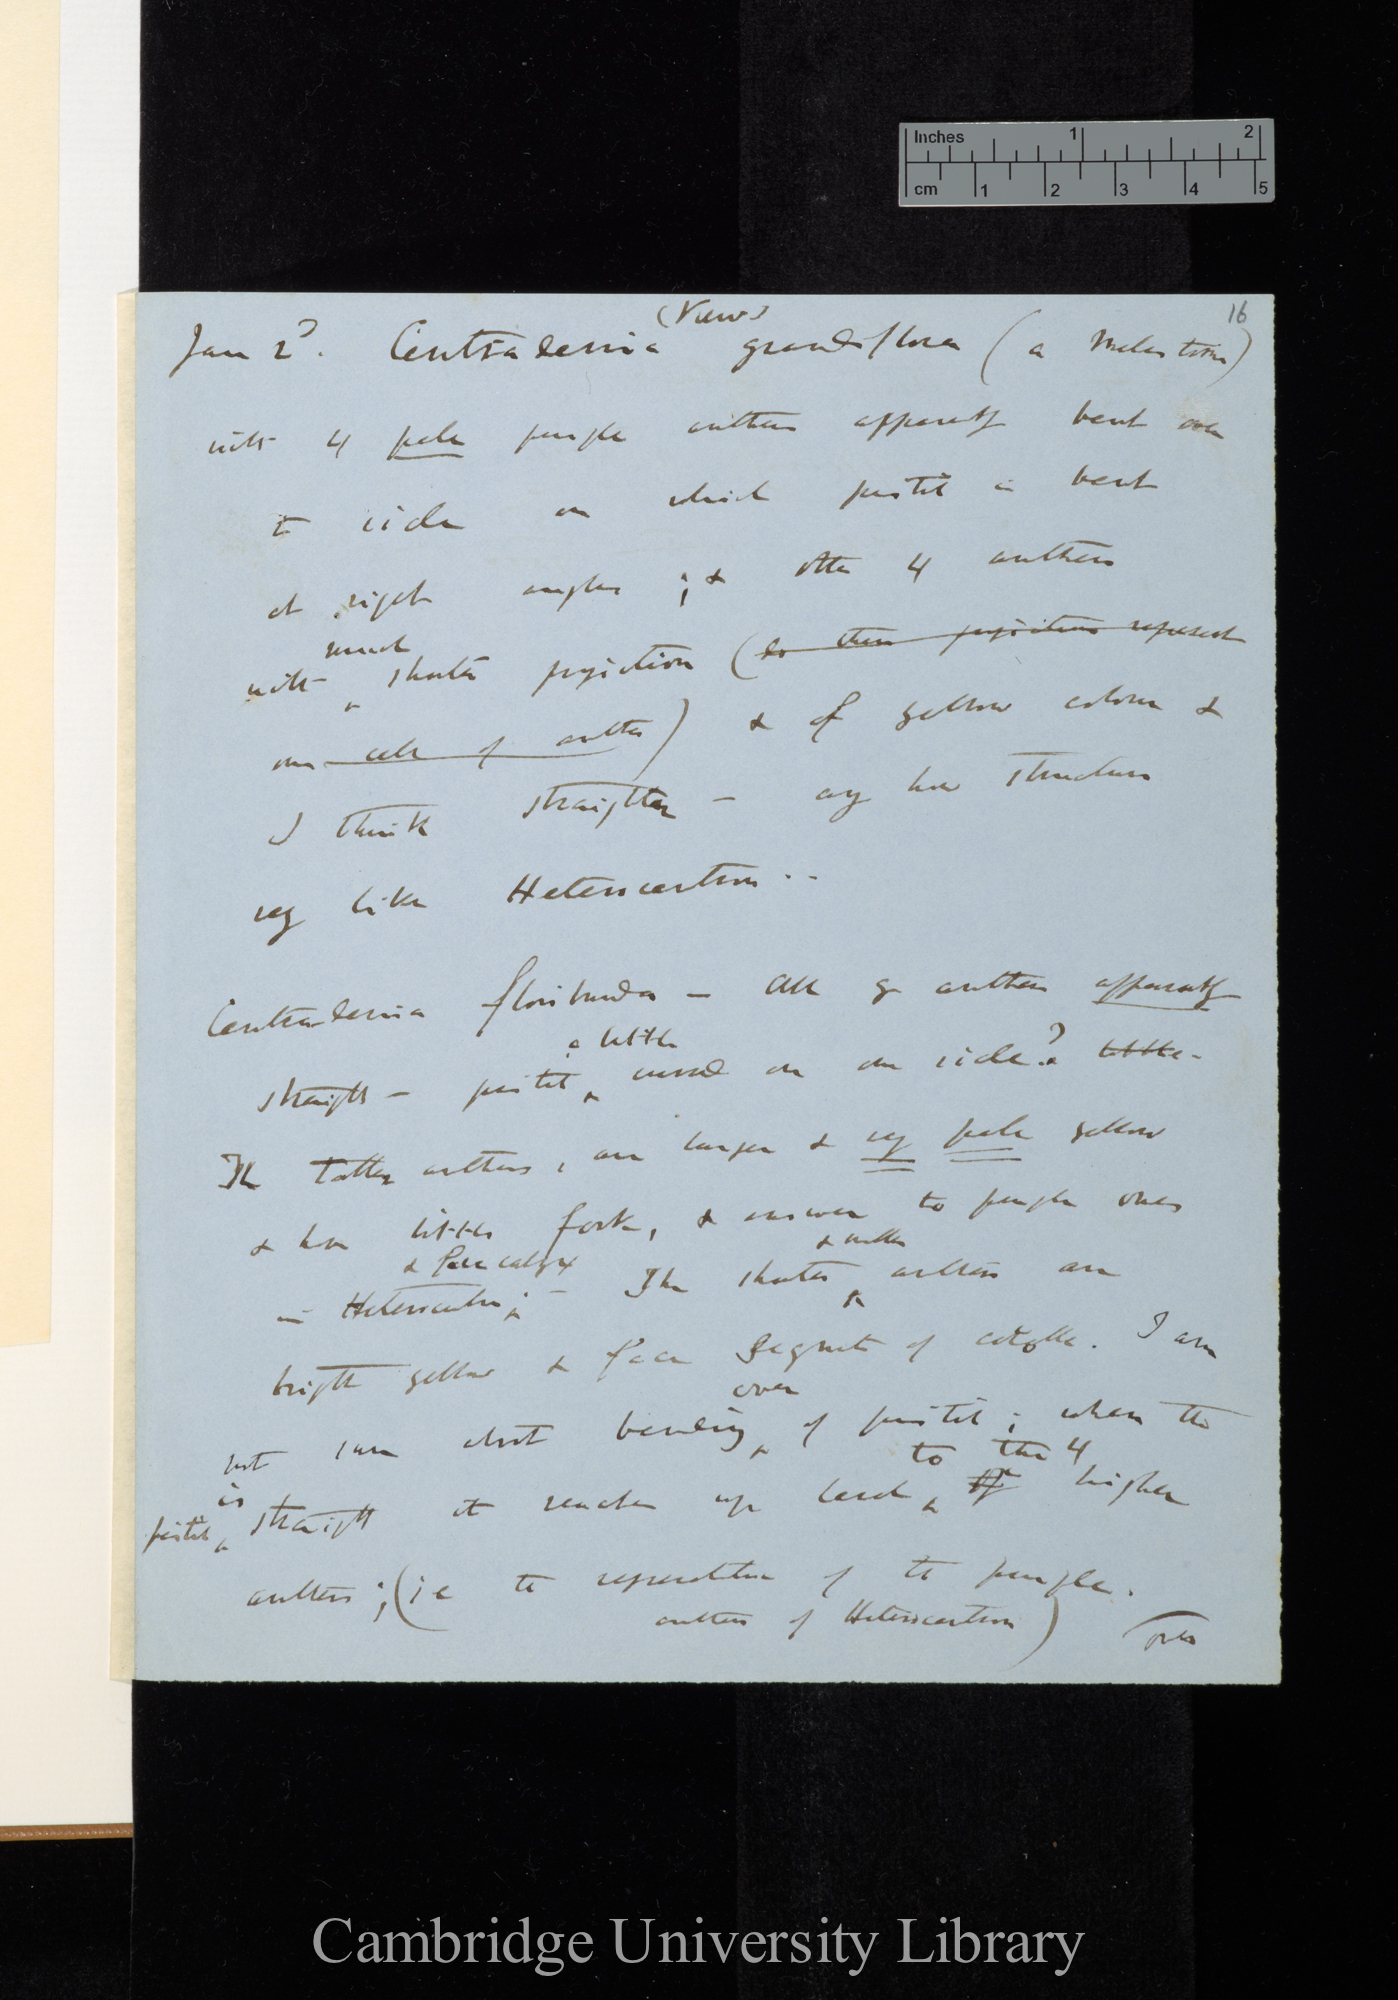 Inches 1 2
cm 1 2 3 4 5
16
(Veres)
Jan 2d. Centradenia grandiflora (a Melastoma)
with 4 pale purple anthers apparently bent over
to side on which pistil is bent
at right angles; & other 4 anthers
much
with ^ shorter projection (do these projections represent
one cell of anther) & of yellow colour &
I think straighter — have structure
very like Heterocentron..
Centradenia floribunda — All 8 anthers apparently
a little
straight — pistil ^ curved on one side? little.
The taller anthers, are larger & very pale yellow
& have little fork, & answer to purple ones
& face calyx & smaller
in Heterocentron; ^ — The shorter ^ anthers are
bright yellow & face segments of corolla. I am
over
not sure about bending ^ of pistil; when the
is to the 4
pistil ^ straight it reaches up level ^ higher
anthers; (ie the representatives of the purple.
anthers of Heterocentron) over
Cambridge University Library